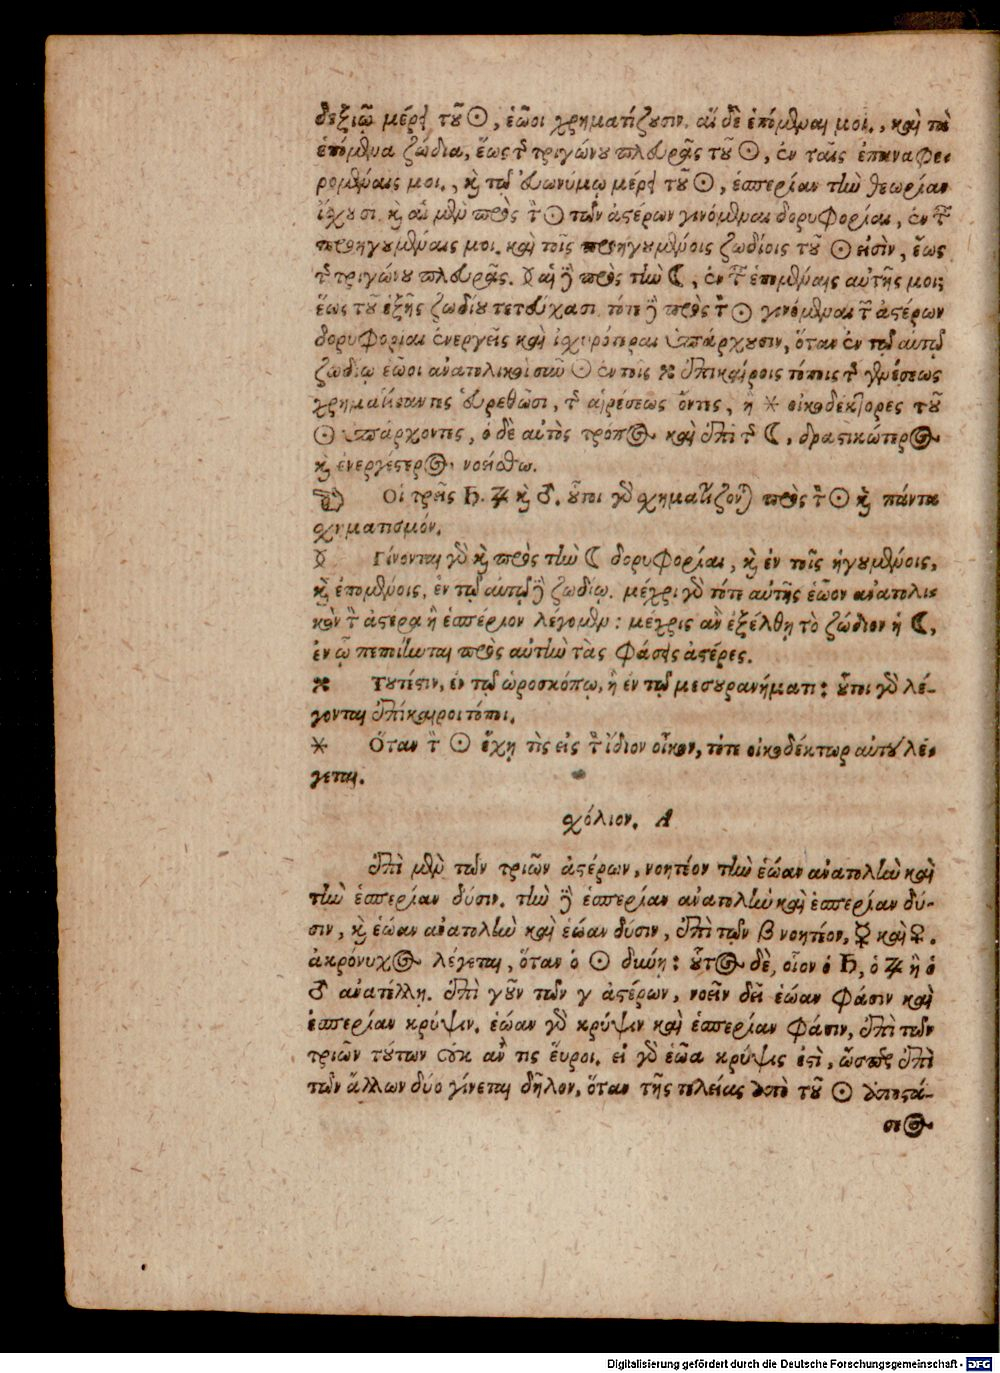 δεξιῷ μέρει τοῦ ☉, ἑῷοι χρηματίζουσιν. αἱ δὲ ἑπόμεναι μοι., καὶ τὰ
ἑπόμενα ζώδια, ἕως τῆς τριγώνου πλευρᾶς τοῦ ☉, ἐν ταῖς ἐπαναφε-
ρομέναις μοι., καὶ τῷ εὐωνύμῳ μέρει τοῦ ☉, ἑσπερίαν τὴν θεωρίαν
ἴσχουσι. καὶ αἱ μὲν πρὸς τὸν ☉ τῶν ἀστέρων γινόμεναι δορυφορίαι, ἐν ταῖς
προηγουμέναις μοι. καὶ τοῖς προηγουμένοις ζωδίοις τοῦ ☉ εἰσὶν, ἕως
τῆς τριγώνου πλευρᾶς. αἱ δὲ πρὸς τὴν ☾, ἐν ταῖς ἑπομέναις αὐτῆς μοι:
ἕως τοῦ ἑξῆς ζωδίου τετεύχασι. τότε δὲ πρὸς τὸν ☉ γινόμεναι τῶν ἀστέρων
δορυφορίαι ἐνεργεῖς καὶ ἰσχυρότεραι ὑπάρχουσιν, ὅταν ἐν τῷ αὐτῷ
ζωδίῳ ἑῷοι ἀνατολικοὶ σὺν ☉ ἐν τοῖς ※ ἐπικαίροις τόποις τῆς γενέσεως
χρηματίσαντες εὑρεθῶσι, τῆς αἱρέσεως ὄντες, ἢ ✳ οἰκοδέκτορες τοῦ
☉ ὑπάρχοντες, ὁ δὲ αὐτὸς τρόπος καὶ ἐπὶ τῆς ☾, δραστικώτερος
καὶ ἐνεργέστερος νοείσθω.
☞ Οἱ τρεῖς ♄. ♃ καὶ ♂. οὗτοι γὰρ σχηματίζονται πρὸς τὸν ☉ καὶ πάντα
σχηματισμόν.
Γίνονται γὰρ καὶ πρὸς τὴν ☾ δορυφορίαι, καὶ ἐν τοῖς ἡγουμένοις,
καὶ ἑπομένοις, ἐν τῷ αὐτῷ δὲ ζωδίῳ. μέχρι γὰρ τότε αὐτῆς ἑῷον ἀνατολι-
κὸν τὸν ἀστέρα ἢ ἑσπέριον λέγομεν: μέχρις ἂν ἐξέλθῃ τὸ ζώδιον ἡ ☾,
ἐν ᾧ πεποίωται πρὸς αὐτὴν τὰς φάσεις ἀστέρες.
※ Τουτέστιν, ἐν τῷ ὡροσκόπῳ, ἢ ἐν τῷ μεσουρανήματι: οὗτοι γὰρ λέ-
γονται ἐπίκαιροι τόποι.
✳ Ὅταν τὸν ☉ ἔχῃ τὶς εἰς τὸν ἴδιον οἶκον, τότε οἰκοδέκτωρ αὐτοῦ λέ-
γεται.
σχόλιον. Α
Ἐπὶ μὲν τῶν τριῶν ἀστέρων, νοητέον τὴν ἑῴαν ἀνατολὴν καὶ
τὴν ἑσπερίαν δύσιν. τὴν δὲ ἑσπερίαν ἀνατολὴν καὶ ἑσπερίαν δύ-
σιν, καὶ ἑῴαν ἀνατολὴν καὶ ἑῴαν δύσιν, ἐπὶ τῶν β νοητέον, ☿ καὶ ♀.
ἀκρόνυχος λέγεται, ὅταν ὁ ☉ δύνῃ: οὗτος δὲ, οἷον ὁ ♄, ὁ ♃ ἢ ὁ
♂ ἀνατέλλῃ. ἐπὶ γοῦν τῶν γ ἀστέρων, νοεῖν δεῖ ἑῴαν φάσιν καὶ
ἑσπερίαν κρύψιν. ἑῴαν γὰρ κρύψιν καὶ ἑσπερίαν φάσιν, ἐπὶ τῶν
τριῶν τούτων οὐκ ἄν τις εὕροι. εἰ γὰρ ἑῴα κρύψις ἐστὶ, ὥσπερ ἐπὶ
τῶν ἄλλων δύο γίνεται δῆλον, ὅταν τῆς τελείας ἀπὸ τοῦ ☉ ἀποστά-
σεως
Digitalisierung gefördert durch die Deutsche Forschungsgemeinschaft - DFG